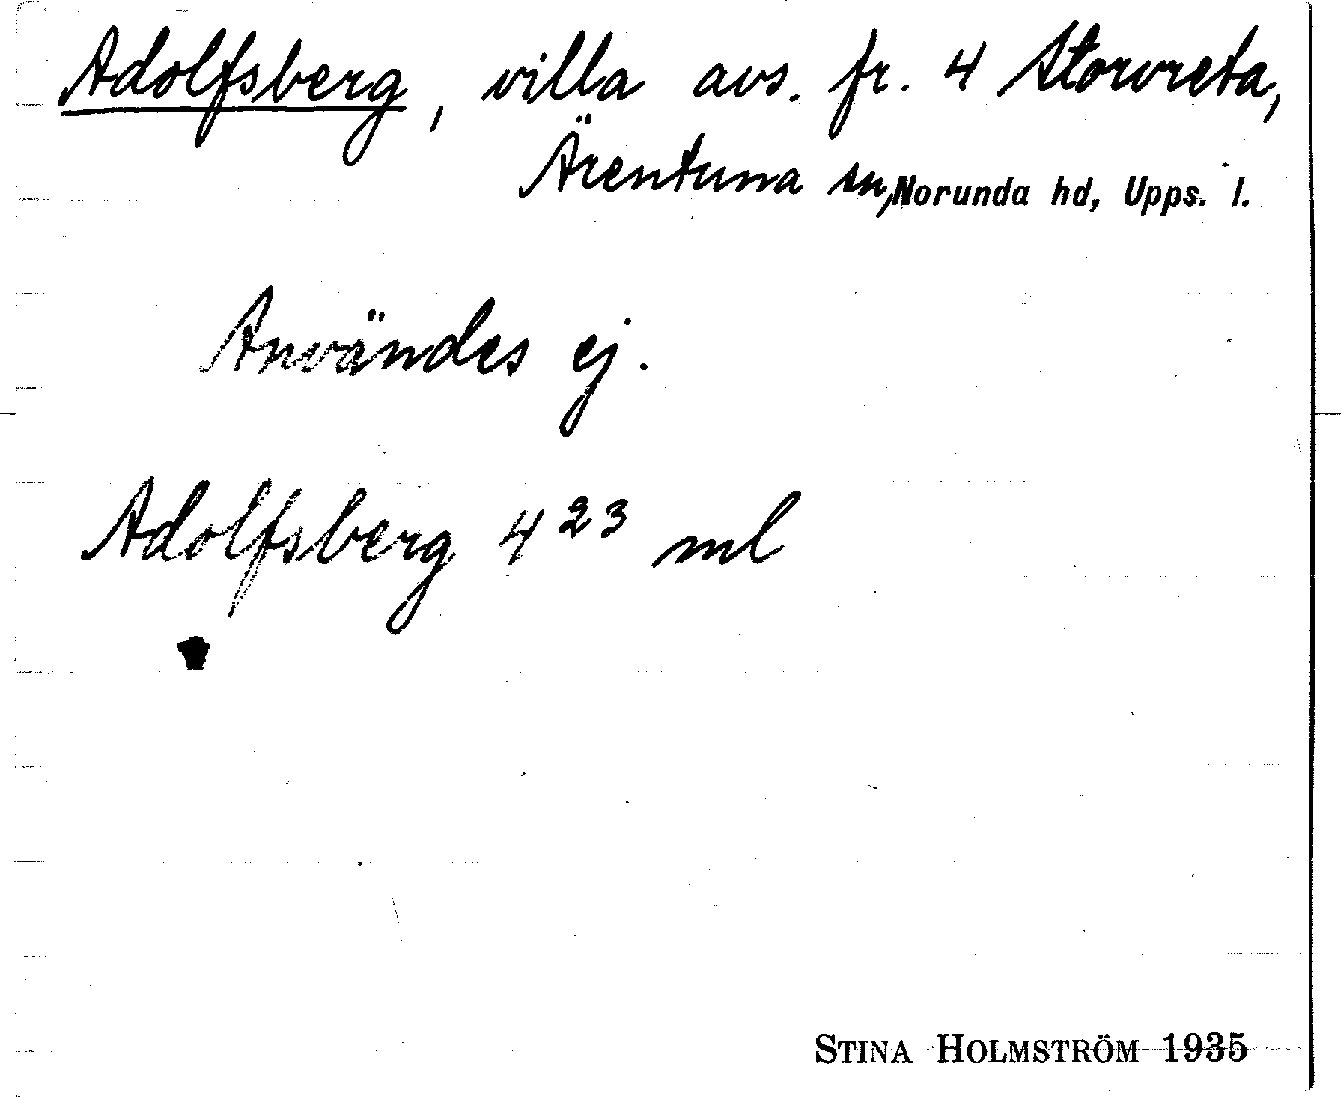 Adolfsberg, villa avs. fr. 4 Storvreta,
Ärentuna sn, Norunda hd, Upps. l.
Användes ej.
Adolfsberg 4²³ ml
STINA HOLMSTRÖM 1935